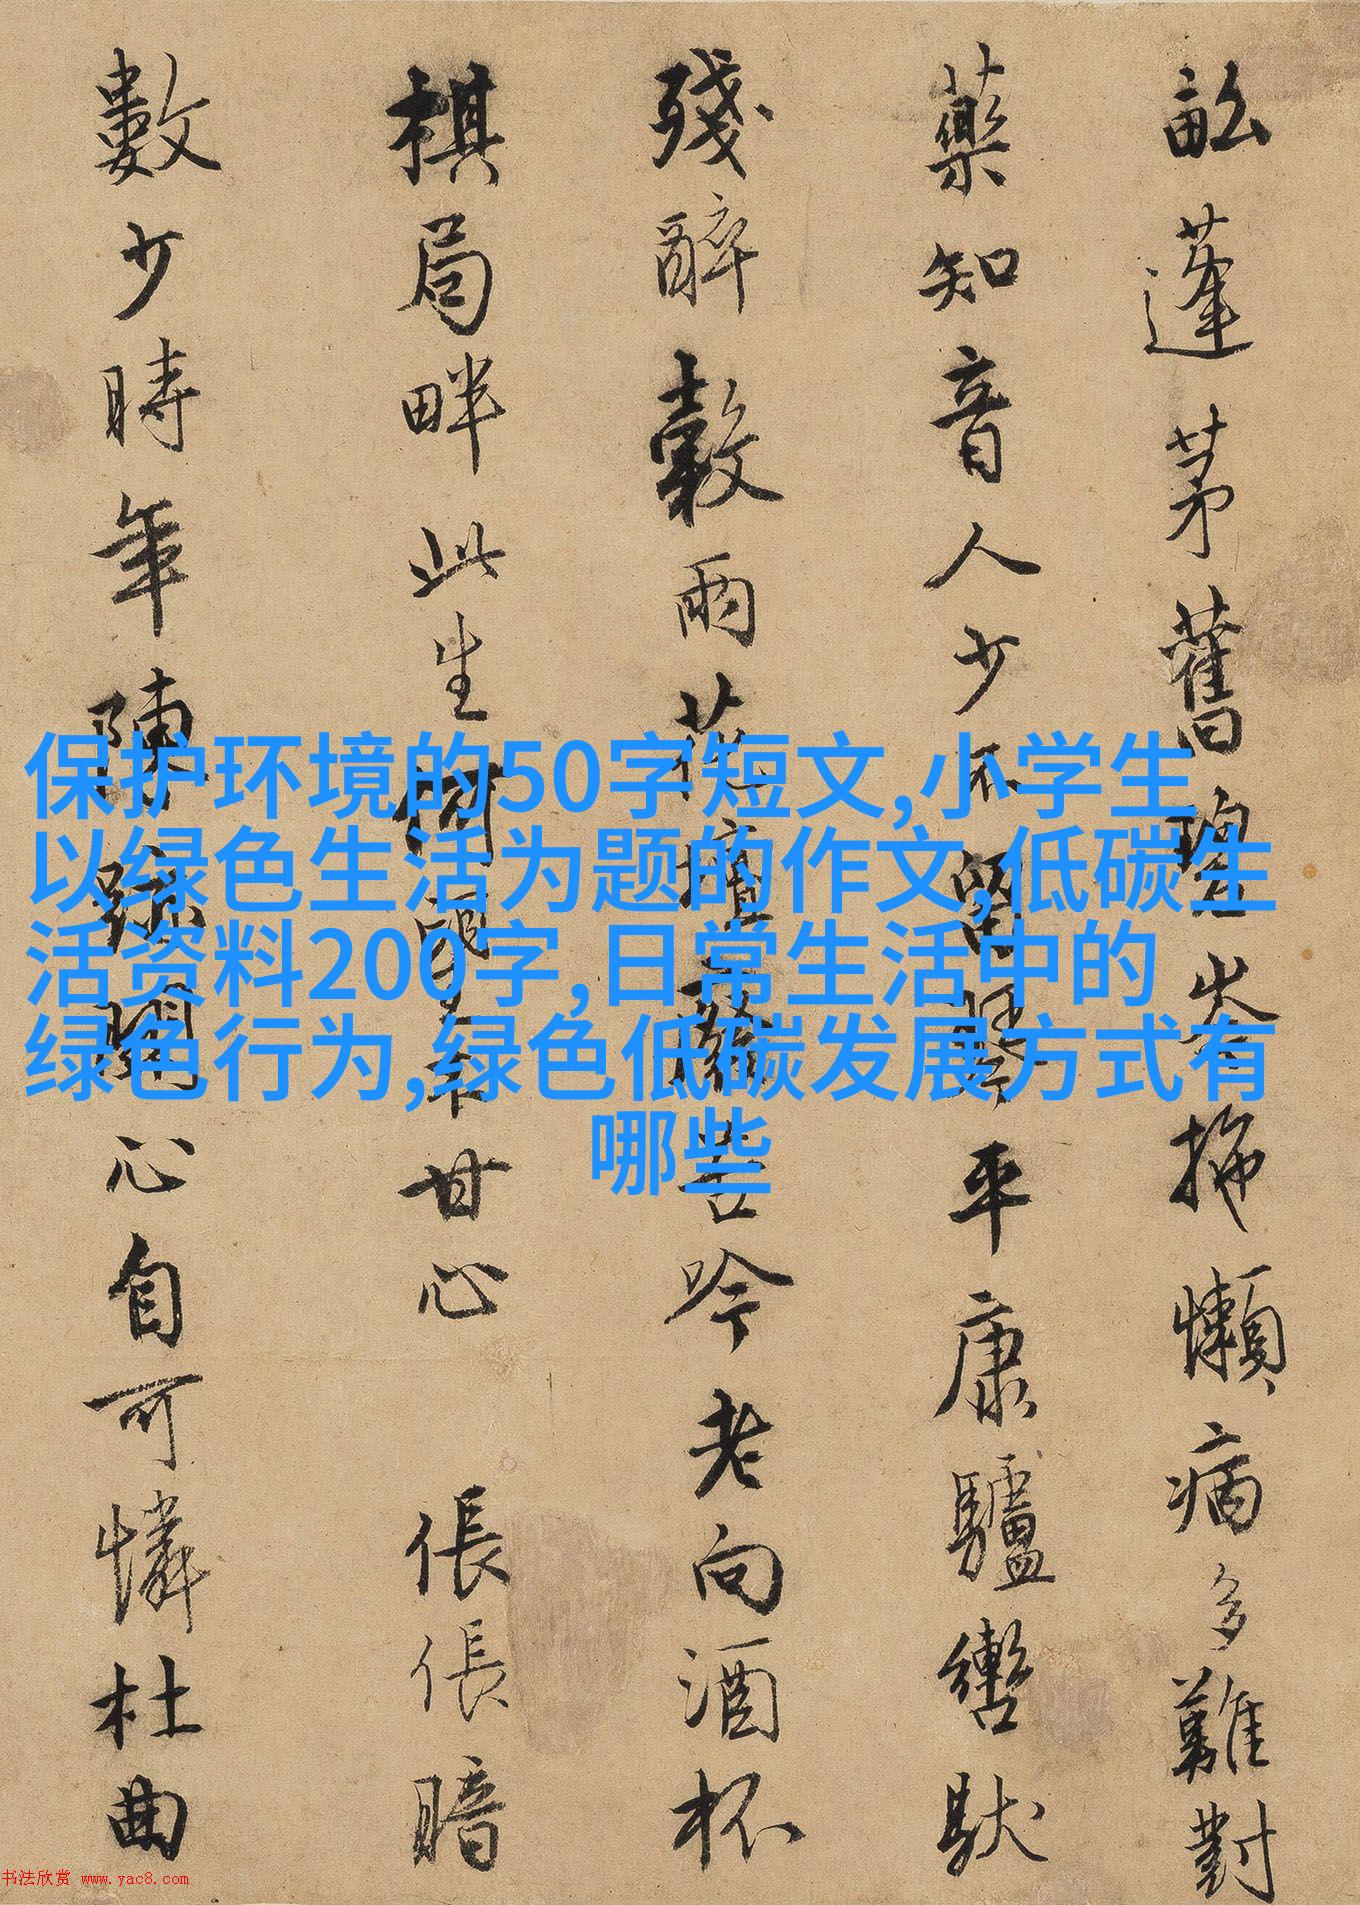 畆蓬茅舊拖懶病多難對
藥知音人少不留琴平康驢轡馱
殘醉穀雨花苦吟老向酒杯
棋局畔此生何不甘心 倀倀暗
數少時年陳跡關心自可憐杜曲
保护环境的50字短文,小学生
以绿色生活为题的作文,低碳生
活资料200字,日常生活中的
绿色行为,绿色低碳发展方式有
哪些
书法欣赏 www.yac8.com